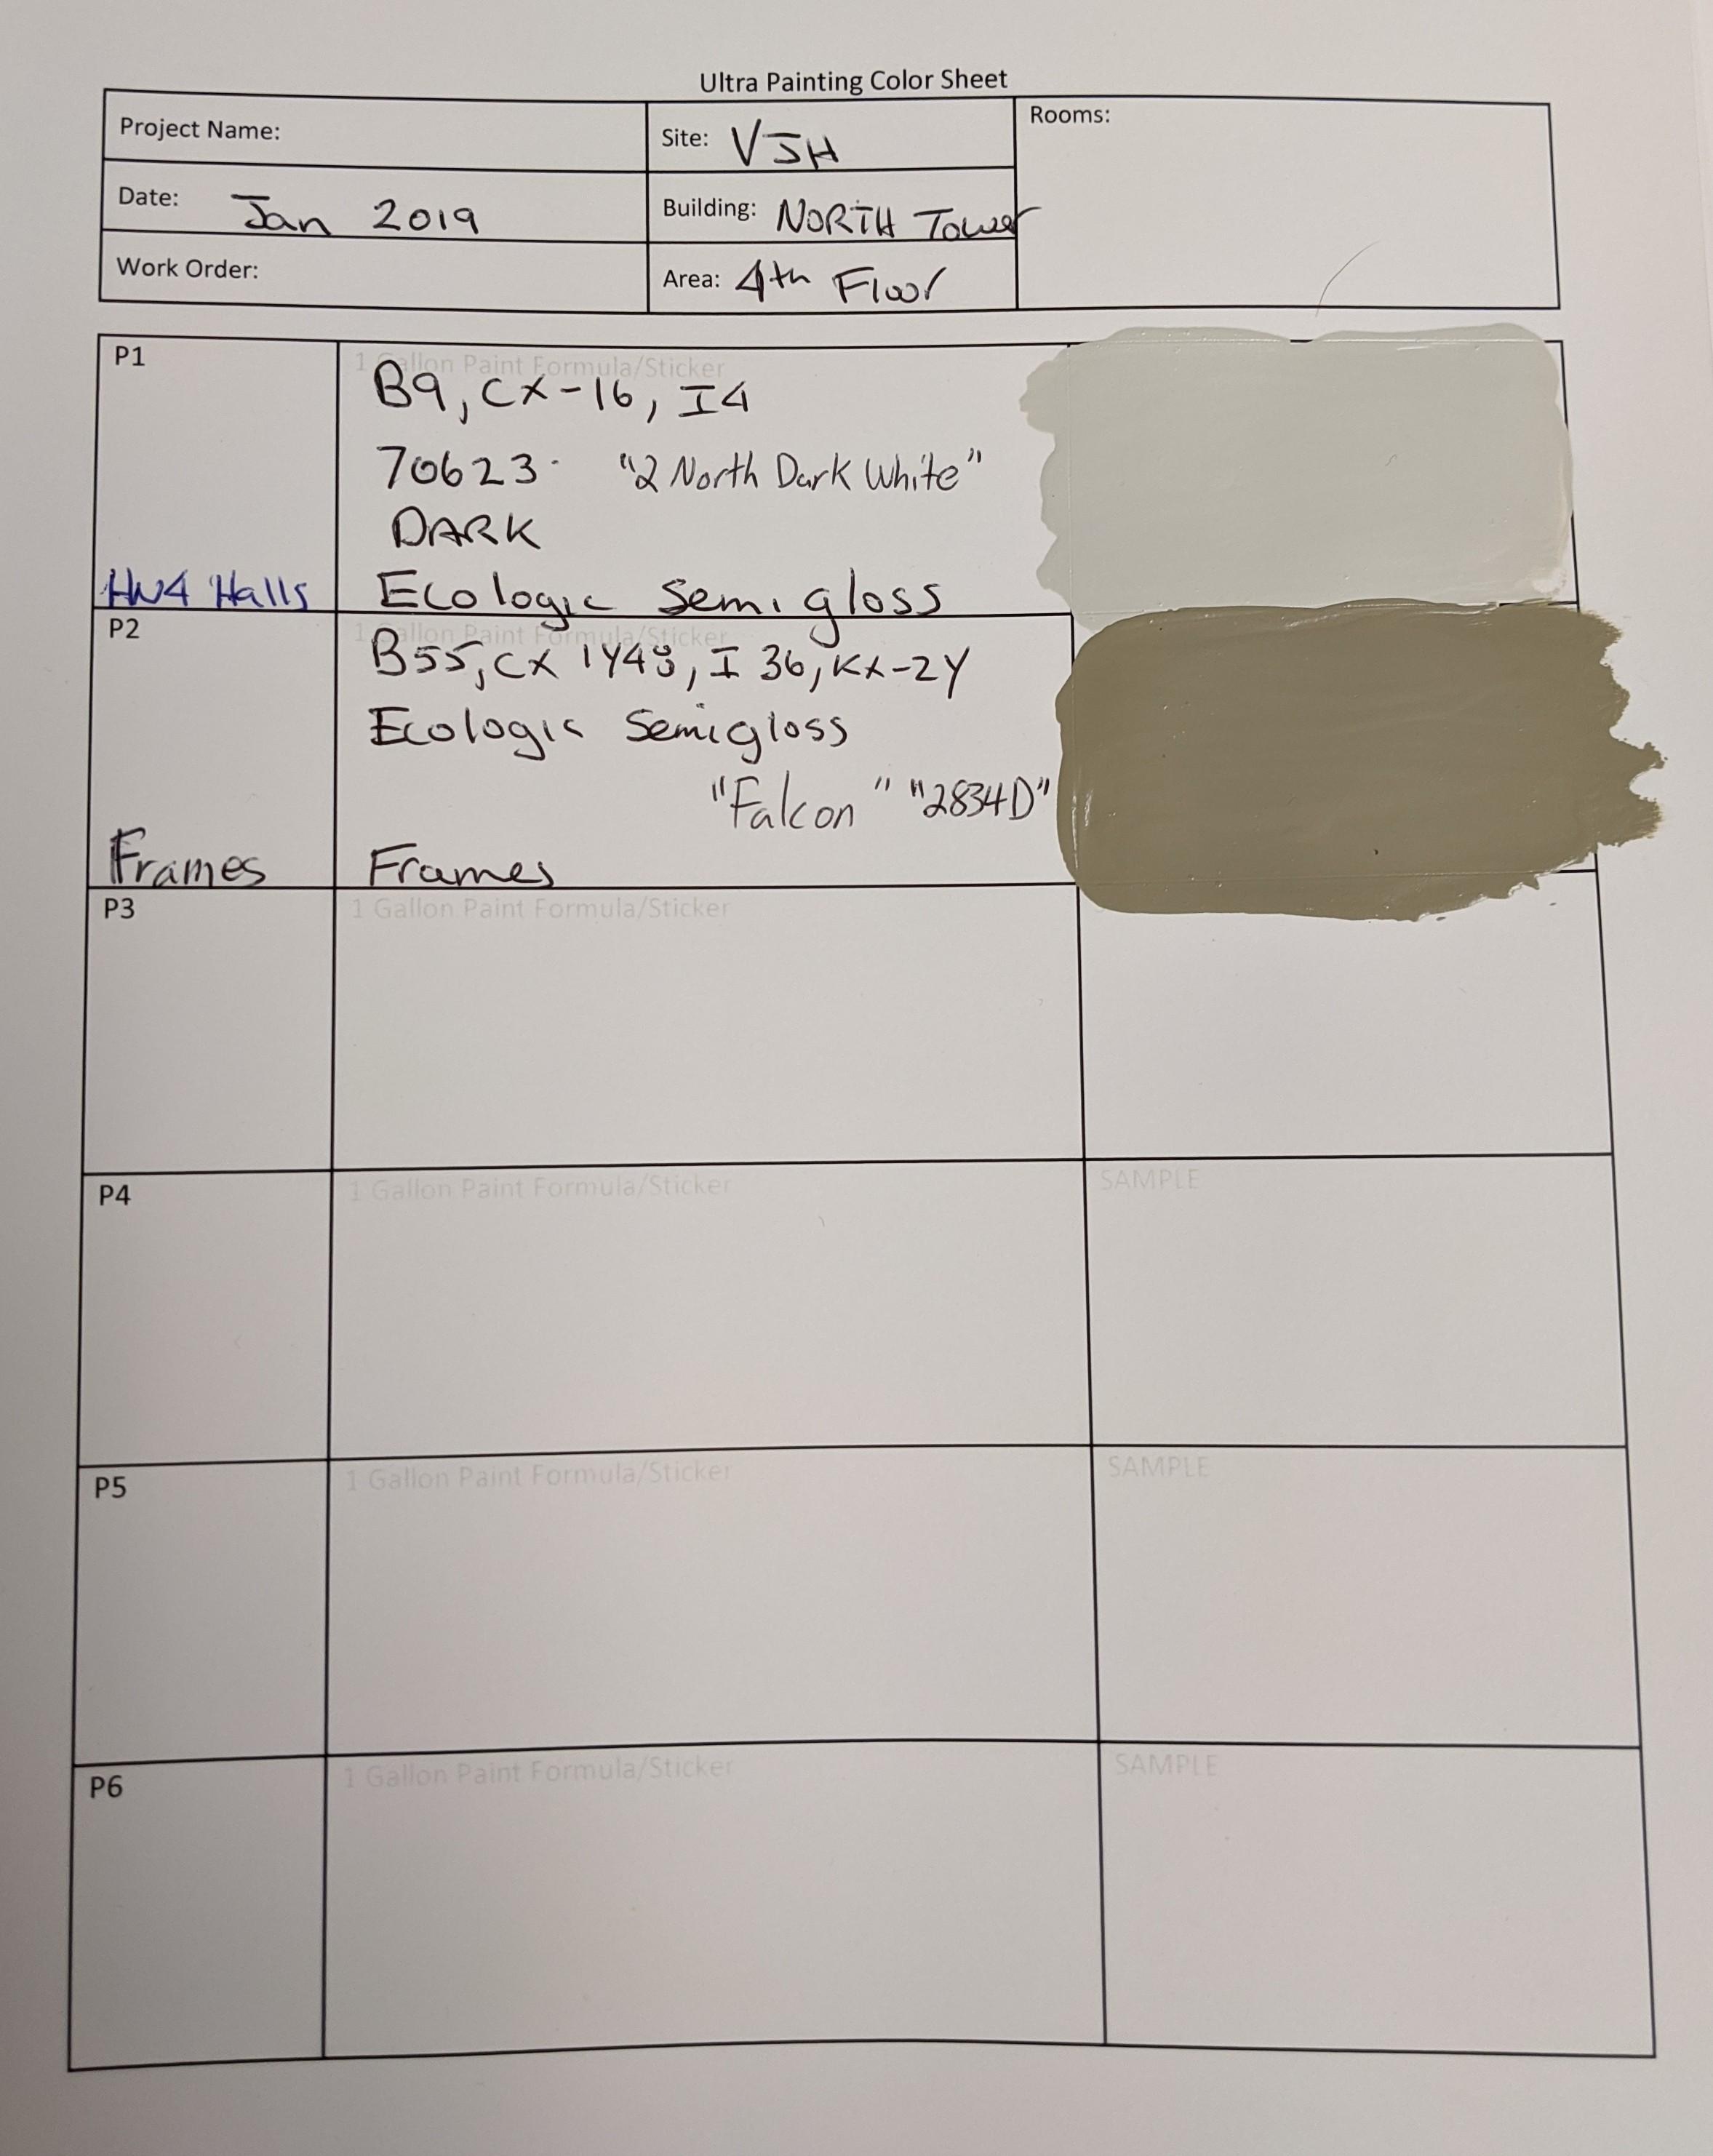 Ultra Painting Color Sheet
Project Name:
Site: VJH
Rooms:
Date: Jan 2019
Building: NORTH Tower
Work Order:
Area: 4th Floor
P1
1 Gallon Paint Formula/Sticker
B9, CX-16, I4
70623 "2 North Dark White"
DARK
HW4 Halls
Ecologic Semigloss
P2
1 Gallon Paint Formula/Sticker
B55, CX 1Y48, I 36, KX-2Y
Ecologic Semigloss
"Falcon" "2834D"
Frames
Frames
P3
1 Gallon Paint Formula/Sticker
P4
1 Gallon Paint Formula/Sticker
SAMPLE
P5
1 Gallon Paint Formula/Sticker
SAMPLE
P6
1 Gallon Paint Formula/Sticker
SAMPLE